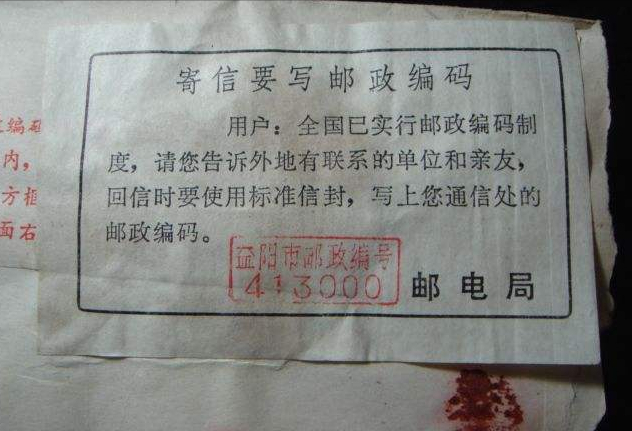 寄信要写邮政编码
用户：全国巳实行邮政编码制
度，请您告诉外地有联系的单位和亲友，
回信时要使用标准信封，写上您通信处的
邮政编码。
益阳市邮政编号
413000
邮电局
编码
内，
方框
面右